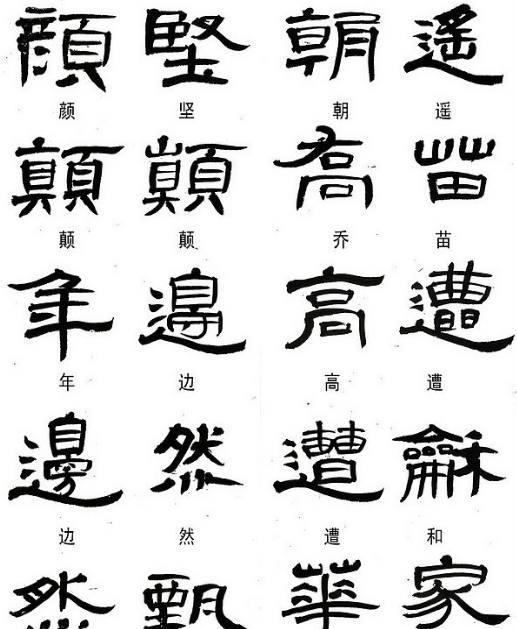 顔 堅 朝 遙
颜 坚 朝 遥
顛 巔 喬 苗
颠 颠 乔 苗
年 邊 高 遭
年 边 高 遭
邊 然 遭 龢
边 然 遭 和
然 甄 華 家